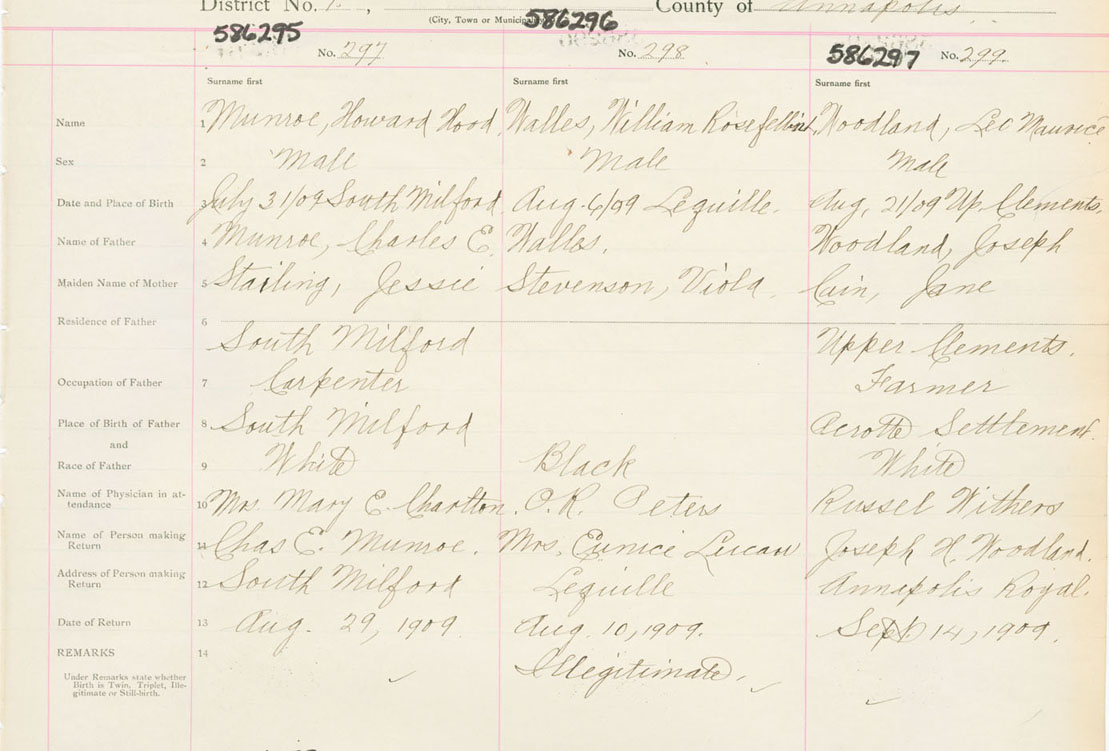 District No. 1. , County of Annapolis
(City, Town or Municipality)
586295 586296 586297
No. 297 No. 298 No. 299
Surname first Surname first Surname first
Name 1 Munroe, Howard Hood Walles, William Rosefelbint Woodland, Leo Maurice
Sex 2 Male Male Male
Date and Place of Birth 3 July 31/09 South Milford Aug. 6/09 Lequille. Aug, 21/09 Up. Clements.
Name of Father 4 Munroe, Charles E. Walles. Woodland, Joseph
Maiden Name of Mother 5 Stailing, Jessie Stevenson, Viola. Cain, Jane
Residence of Father 6 South Milford Upper Clements.
Occupation of Father 7 Carpenter Farmer
Place of Birth of Father 8 South Milford Settlement.
and
Race of Father 9 White Black White
Name of Physician in at-
tendance 10 Mrs. Mary E. Charlton. O. R. Peters Russel Withers
Name of Person making
Return 11 Chas E. Munroe. Mrs. Eunice Lucas Joseph H. Woodland.
Address of Person making
Return 12 South Milford Lequille Annapolis Royal.
Date of Return 13 Aug. 29, 1909 Aug. 10, 1909. Sept. 14, 1909.
REMARKS 14 Illegitimate.
Under Remarks state whether
Birth is Twin, Triplet, Ille-
gitimate or Still-birth.